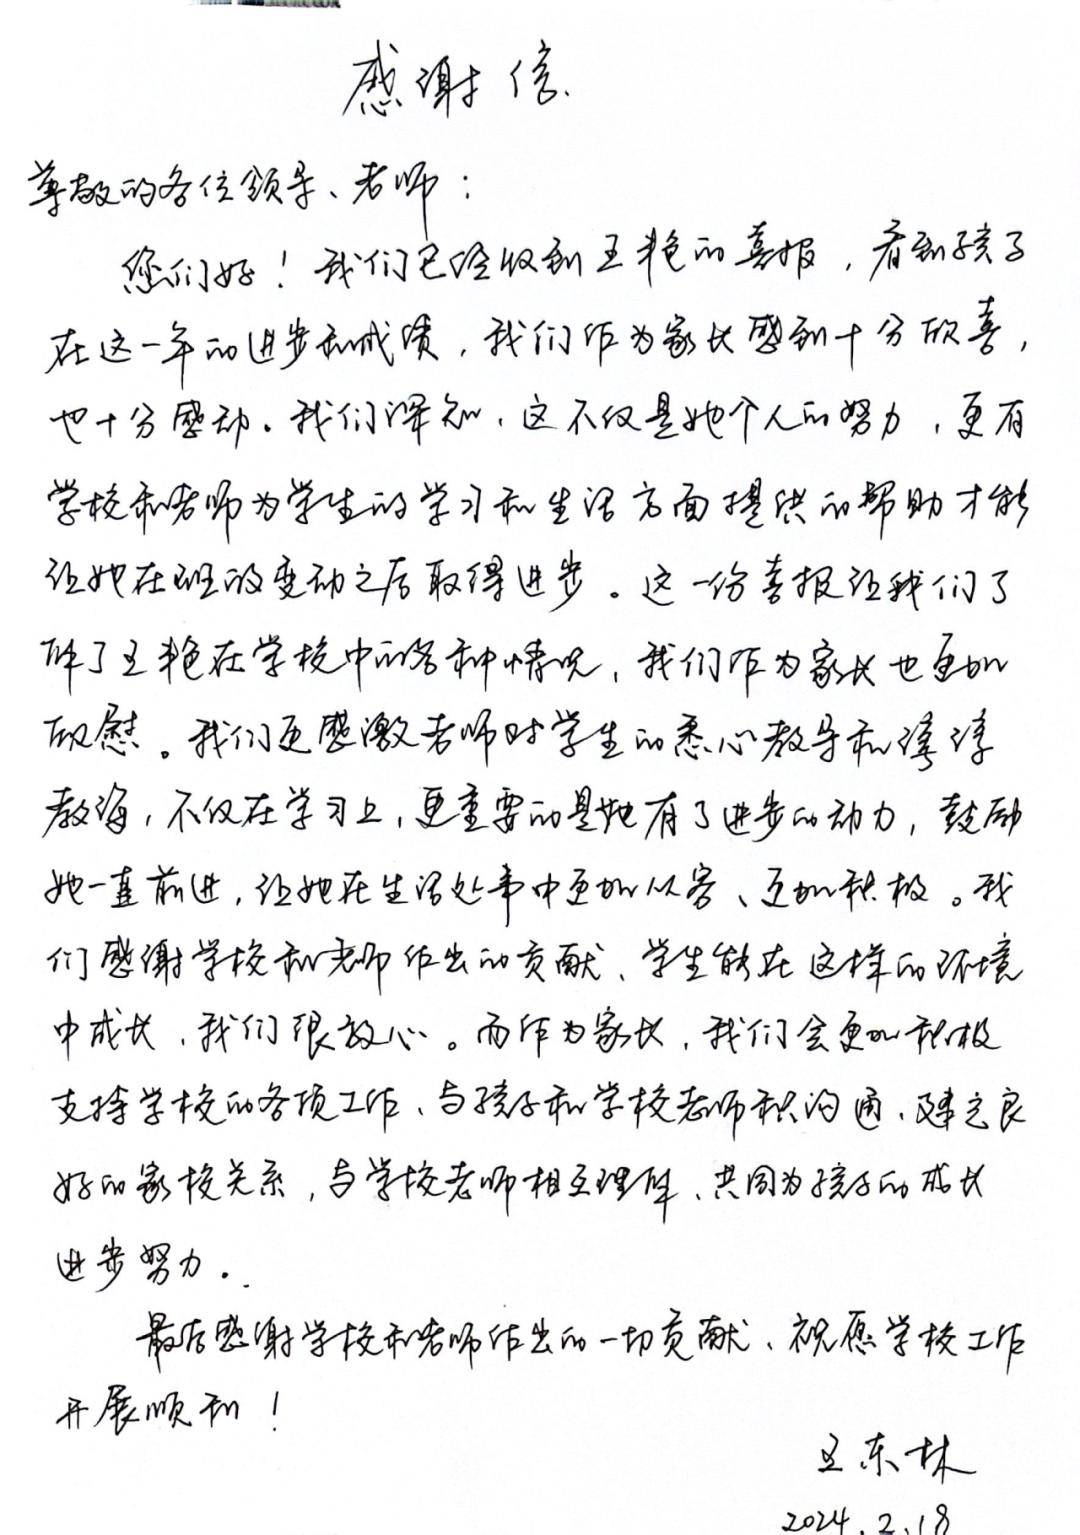 感谢信
尊敬的各位领导、老师：
您们好！我们已经收到王艳的喜报，看到孩子
在这一年的进步和成绩，我们作为家长感到十分欣喜，
也十分感动。我们深知，这不仅是她个人的努力，更有
学校和老师为学生的学习和生活方面提供的帮助才能
让她在班级变动之后取得进步。这一份喜报让我们了
解了王艳在学校中的各种情况，我们作为家长也更加
欣慰。我们更感激老师对学生的悉心教导和谆谆
教诲，不仅在学习上，更重要的是她有了进步的动力，鼓励
她一直前进，让她在生活处事中更加从容、更加积极。我
们感谢学校和老师作出的贡献、学生能在这样的环境
中成长，我们很放心。而作为家长，我们会更加积极
支持学校的各项工作、与孩子和学校老师积沟通、建立良
好的家校关系，与学校老师相互理解、共同为孩子的成长
进步努力。
最后感谢学校和老师作出的一切贡献、祝愿学校工作
开展顺利！
王东林
2024.2.18